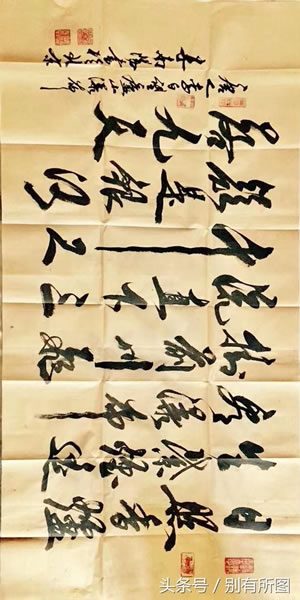 日照香爐
生紫煙遥
看瀑布
掛前川飛
流直下三
千尺
疑是銀河
落九天
李白望廬山瀑布
头条号 / 别有所图